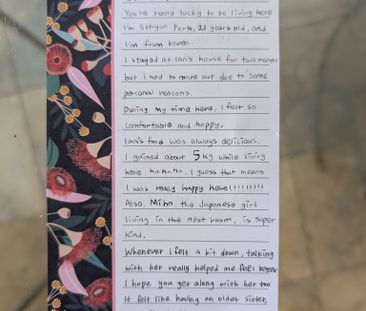 You're really lucky to be living here
I'm Sehyun Park, 21 years old, and
I'm from Korea.
I stayed at Ian's house for two months
but I had to move out due to some
personal reasons.
During my time here, I felt so
comfortable and happy.
Ian's food was always delicious.
I gained about 5kg while living
here hahaha. I guess that means
I was really happy here!!!!!!!!!
Also, Miho, the Japanese girl
living in the next room, is super
kind.
Whenever I felt a bit down, talking
with her really helped me feel
I hope you get along with her too
It felt like having an older sister